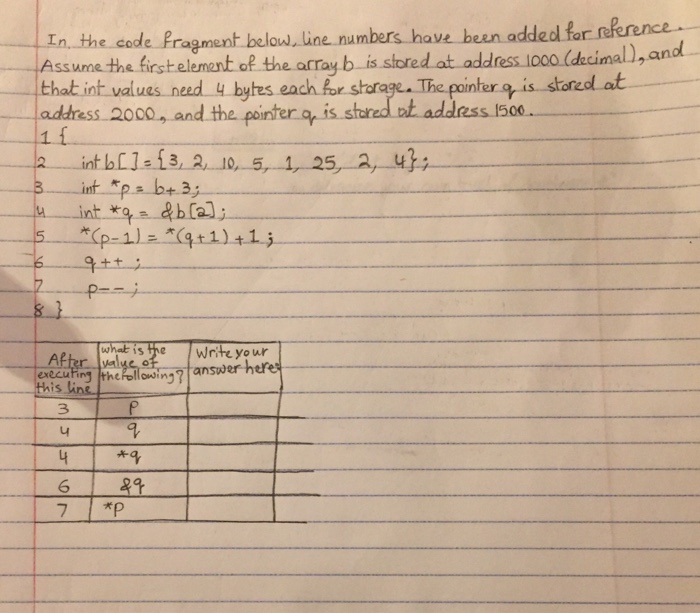 In the code fragment below, line numbers have been added for reference.
Assume the first element of the array b is stored at address 1000 (decimal), and
that int values need 4 bytes each for storage. The pointer q is stored at
address 2000, and the pointer q is stored at address 1500.
1 {
2 int b[] = {3, 2, 10, 5, 1, 25, 2, 4};
3 int *p = b+3;
4 int *q = &b[2];
5 *(p-1) = *(q+1) +1;
6 q++;
7 p--;
8 }
After executing this line | what is the value of the following? | Write your answer here
3 | p
4 | q
4 | *q
6 | &q
7 | *p